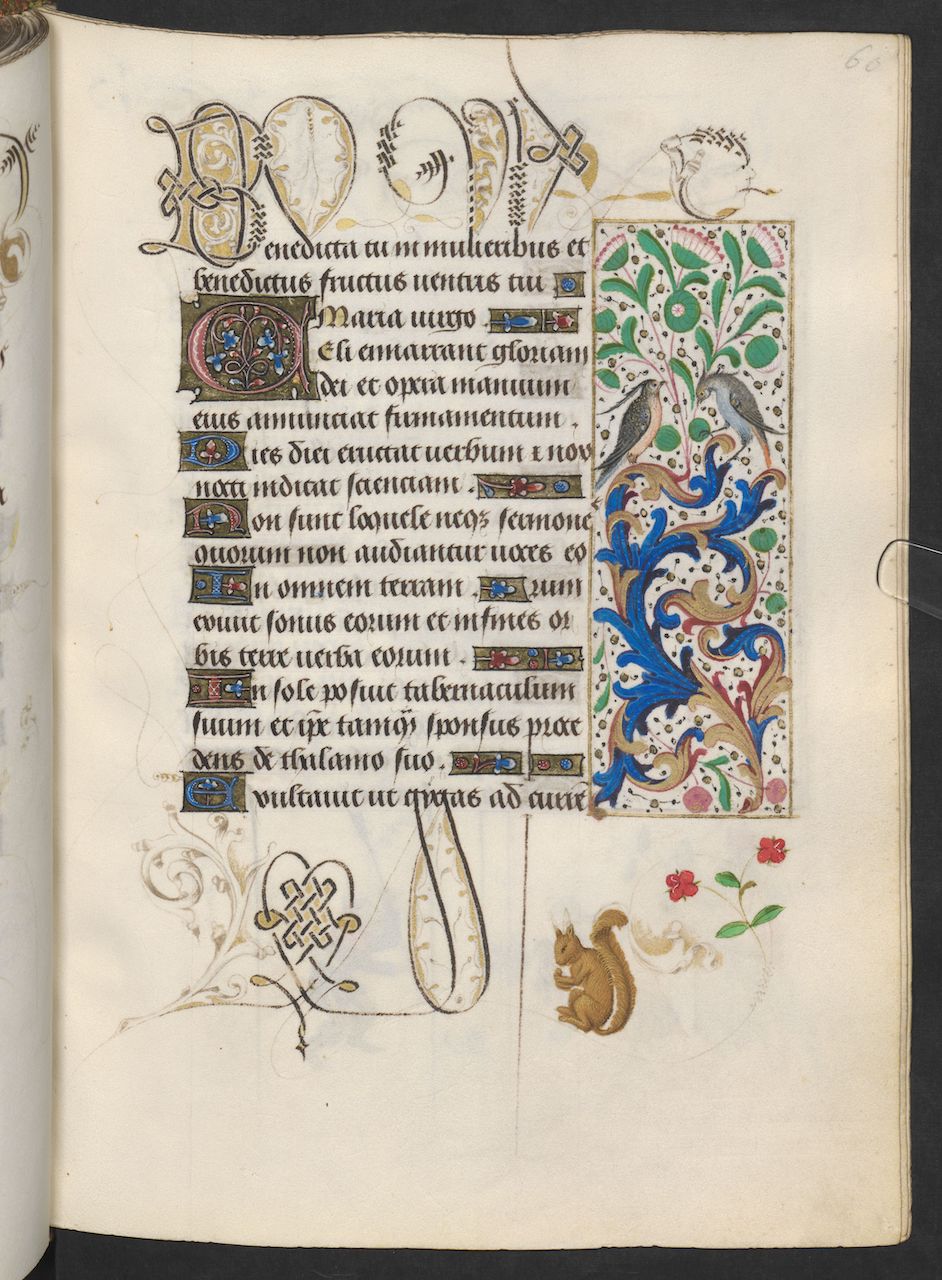 60
Benedicta tu in mulieribus et
benedictus fructus uentris tui
Maria uirgo
Celi ennarrant gloriam
dei et opera manuum
eius annunciat firmamentum .
Dies diei eructat uerbum ⁊ nox
nocti indicat scienciam .
Non sunt loquele neqꝫ sermone
quorum non audiantur uoces eo
In omnem terram . rum
exiuit sonus eorum et in fines or
bis terre uerba eorum .
In sole posuit tabernaculum
suum et ip̄e tamqꝫ sponsus proce
dens de thalamo suo .
Exultauit ut gygas ad curre